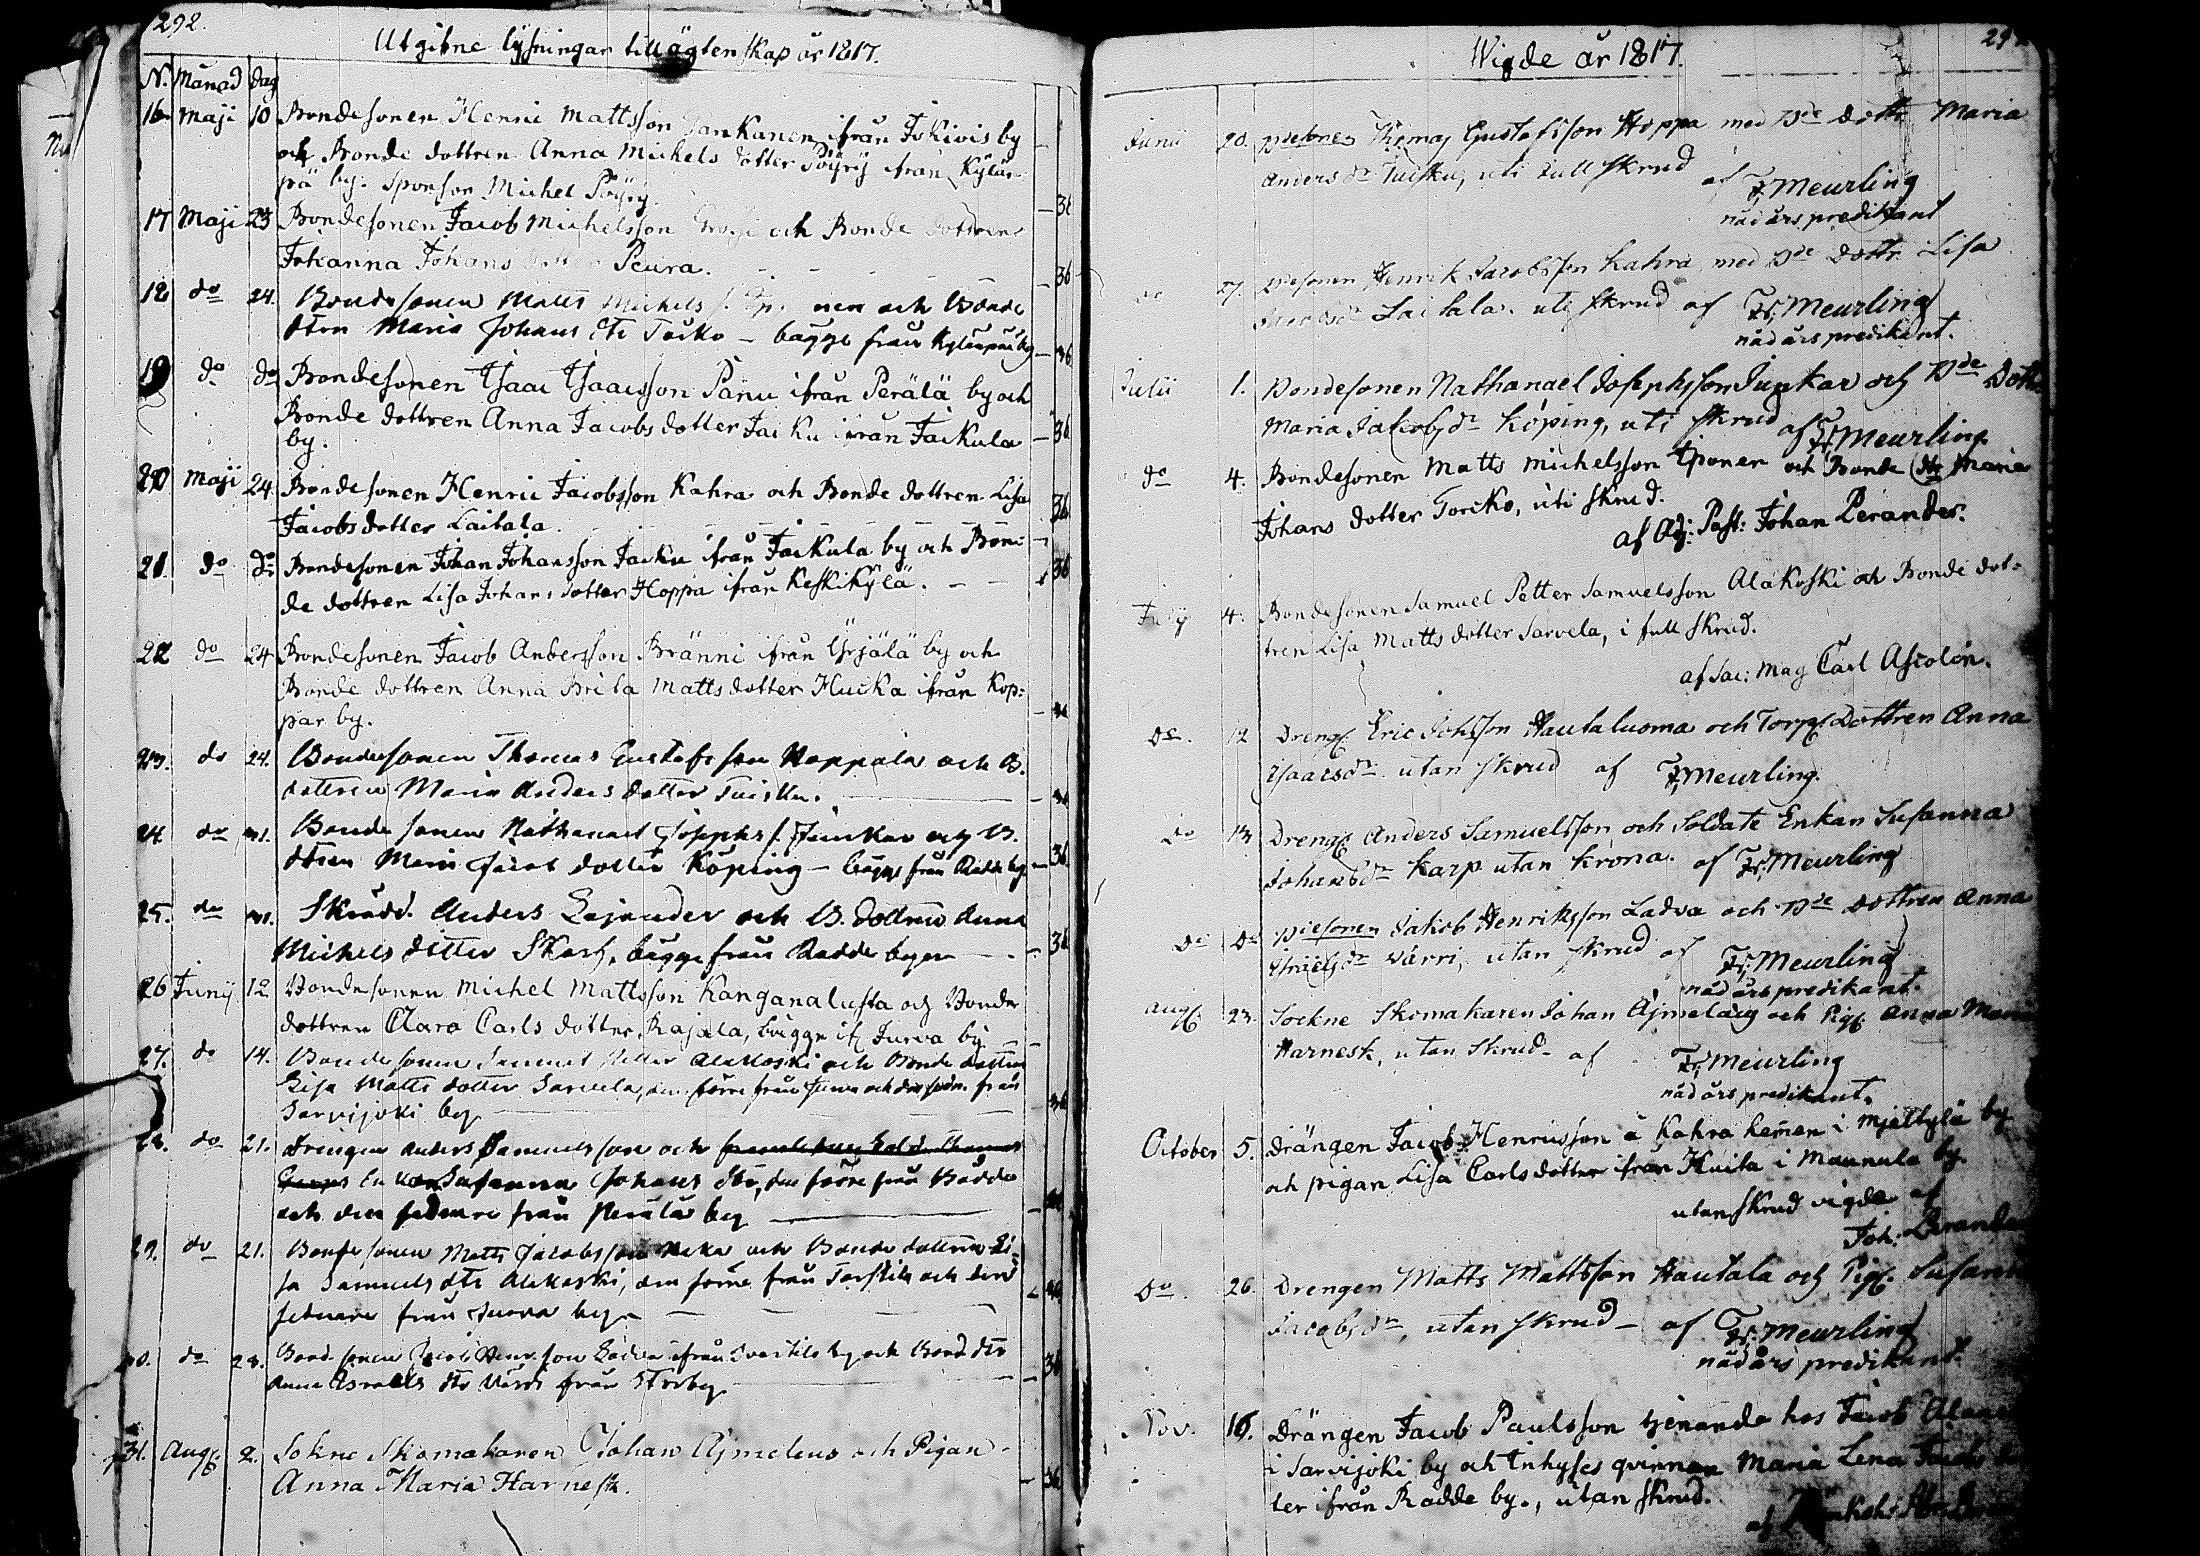 292.
Utgifne lysningar till ägtenskap år 1817.
N. Månad dag
16. Maji 10 Bondesonen Henric Mattsson ifrån Jokivis by
och Bonde dottren Anna Michels dotter Pöÿrÿ ifrån Kÿlän-
pä by. Sponsor Michel Pöÿrÿ. 36
17 Maji 23 Bondesonen Jacob Michelsson och Bonde dottren
Johanna Johans dotter Peura. 36
18 do 24. Bondesonen Matts Michels s. och Bonde
dtren Maria Johans dtr Torko - bägge från Kylänpää by 36
19 do do Bondesonen Isaac Isaacsson Panu ifrån Perälä by och
Bonde dottren Anna Jacobs dotter Jaiku ifrån Jaikula 36
by.
20 Maji 24 Bondesonen Henric Jacobsson Kahra och Bonde dottren Lisa
Jacobs dotter Laitala 36
21. do do Bondesonen Johan Johansson Jaiku ifrån Jaikula by och Bon-
de dottren Lisa Johans dotter Hoppa ifrån Keskikÿlä. 36
22 do 24 Bondesonen Jacob Andersson Bränni ifrån Yrjälä by och
Bonde dottren Anna Brita Matts dotter Kucka ifrån Kop-
par by.
23. do 24. Bondesonen Thomas Gustafsson Hoppala och B.
dottren Maria Anders dotter Tuisku.
24 do 31. Bondesonen Nathanael Josephs s. Junkar och B.
dtren Maria Jacobs dotter Köping - bägge från Rådde by 36
25. do 31. Skrädd. Anders Lejander och B. dottren Anna
Michels dotter Skarf, bägge från Radde byen 36
26 Junij 12 Bondesonen Michel Mattsson Kanganalusta och Bonde
dottren Clara Carls dotter Rajala, bägge if. Jurva by
27. do 14. Bondesonen Samuel Petter Alakoski och Bonde dottren
Lisa Matts dotter Sarvela, den förre från Jurva och den sedn. från
Sarvijoki by 36
28. do 21. Drengen Anders Samuelsson och
Enkan Susanna Johans dtr, den förre från Rådde
och den sednare från Perälä by
29. do 21. Bondesonen Matts Jacobsson och Bonde dottren Li-
sa Samuels dtr Alakoski, den förre från Torstila och den
sednare från Jurva by
30. do 28. Bond. sonen Jacob Henr. son Ladva ifrån Svartila by och Bond dtr
Anna Israels dtr Värri från Storby 36
31. Aug. 2. Sokne Skomakaren Johan Ajmeleus och Pigan
Anna Maria Harnesk. 36
Wigde år 1817.
Junii 20. Bdesonen Thomas Gustafsson Hoppa med Bde dottr Maria
Anders dr Tuisku, uti full skrud
af Fr. Meurling
nådårs predikant
do 27. Bdesonen Henrik Jacobsson Kahra med Bde dottr Lisa
Jacobsdr Laitala. uti skrud af Fr. Meurling
nådårs predikant.
Julii 1. Bondesonen Nathanael Josephsson Junkar och Bde Dottr
Maria Jakobsdr Köping, uti skrud af Fr. Meurling
do 4. Bondesonen Matts Michelsson Iponen och Bonde dtr Maria
Johans dotter Torcko, uti skrud.
af Adj: Past: Johan Perander.
July 4. Bondesonen Samuel Petter Samuelsson Alakoski och Bonde dot-
tren Lisa Matts dotter Sarvela, i full skrud.
af Sac: Mag Carl Ascolin.
Do. 12 Dreng. Eric Johsson Hautaluoma och Torp. Dottren Anna
Isaacsdr. utan skrud af Fr. Meurling.
Do 13 Dreng. Anders Samuelsson och Soldate Enkan Susanna
Johansdr Karp utan krona. af Fr. Meurling
Do Do Bdesonen Jakob Henriksson Ladva och Bde Dottren Anna
Israelsdr Värri, utan skrud af Fr. Meurling
nådårs predikant.
Aug. 23. Sockne Skomakaren Johan Ajmelaeus och Pig. Anna Maria
Harnesk, utan skrud - af Fr. Meurling
nådårs predikant.
October 5. Drängen Jacob Henricsson å Kahra heman i Mjelkylä by
och pigan Lisa Carls dotter ifrån Kuita i Maunula by.
utan skrud vigde af
Joh: Perander
Do. 26. Drengen Matts Mattsson Hautala och Pig. Susan
Jacobsdr, utan skrud - af Fr. Meurling
nådårs predikant.
Nov. 16. Drängen Jacob Paulsson tjenande hos Jacob
i Sarvijoki by och Inhyses qvinnan Maria Lena Jacobs do
ter ifrån Radde by., utan skrud.
af